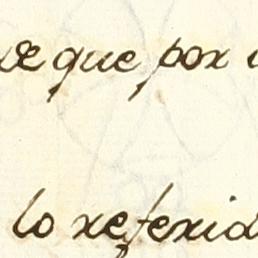 que por
lo referid